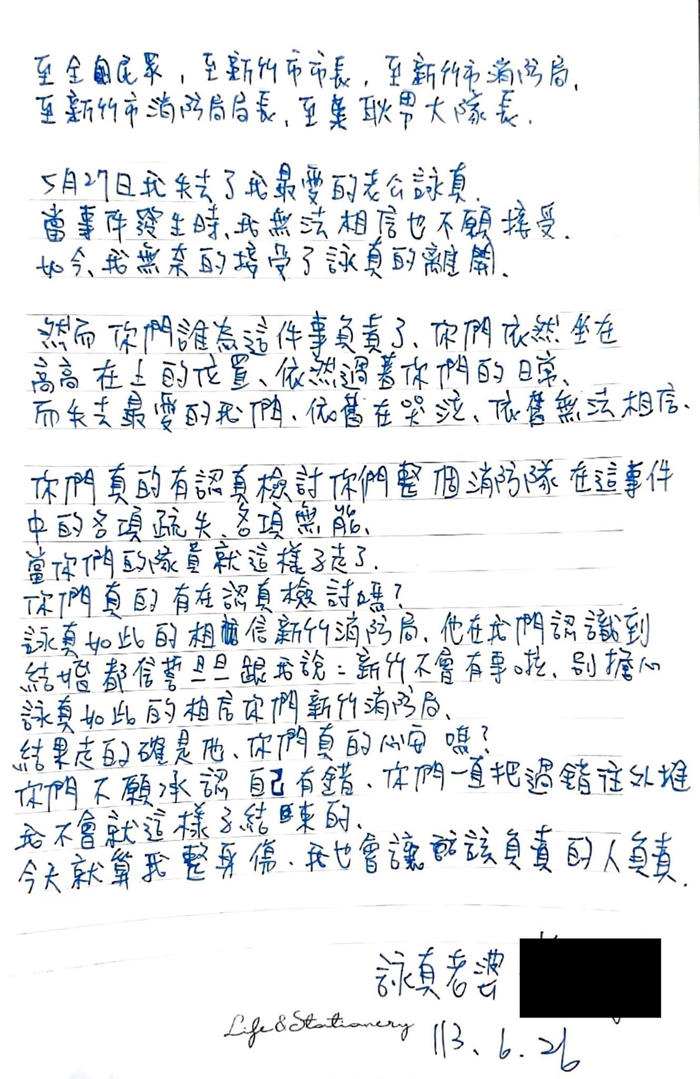 至全國民眾，至新竹市市長，至新竹市消防局，
至新竹市消防局局長，至葉耿男大隊長，
5月27日我失去了我最愛的老公詠真，
當事件發生時、我無法相信也不願接受，
如今、我無奈的接受了詠真的離開、
然而你們誰為這件事負責了、你們依然坐在
高高在上的位置、依然過著你們的日常、
而失去最愛的我們、依舊在哭泣、依舊無法相信、
你們真的有認真檢討你們整個消防隊在這事件
中的各項疏失、各項無能、
當你們的隊員就這樣子走了、
你們真的有在認真檢討嗎？
詠真如此的相信新竹消防局、他在我們認識到
結婚都信誓旦旦跟我說：新竹不會有事啦、別擔心
詠真如此的相信你們新竹消防局、
結果走的確是他、你們真的心安嗎？
你們不願承認自己有錯、你們一直把過錯往外堆
我不會就這樣子結束的、
今天就算我整身傷、我也會讓該負責的人負責、
詠真老婆
Life&Stationery
113.6.26